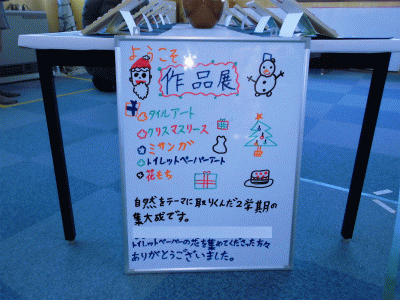 ようこそ
作品展
タイルアート
クリスマスリース
ミサンガ
トイレットペーパーアート
花もち
自然をテーマに取りくんだ2学期の
集大成です。
トイレットペーパーの芯を集めてくださった方々
ありがとうございました。